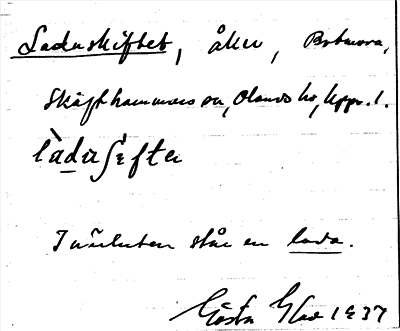 Laduskiftet, åker, Botmora,
Skäfthammars sn, Olands hd, Upps. l.
làduʃɛ́fter
I närheten står en lada.
Gösta 1937